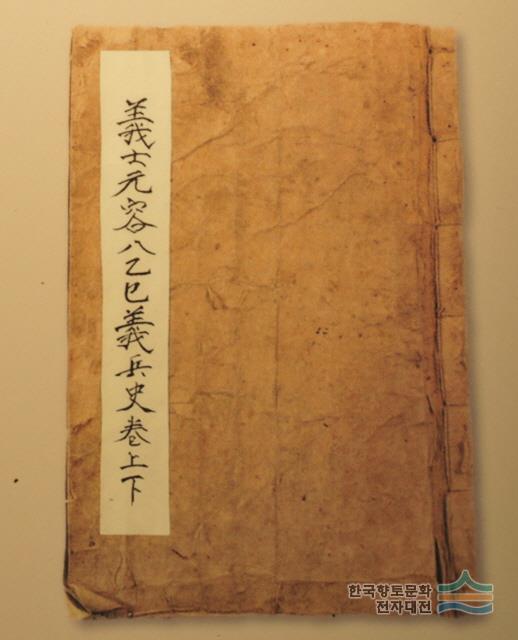 義士元容八乙巳義兵史卷上下
한국향토문화
전자대전